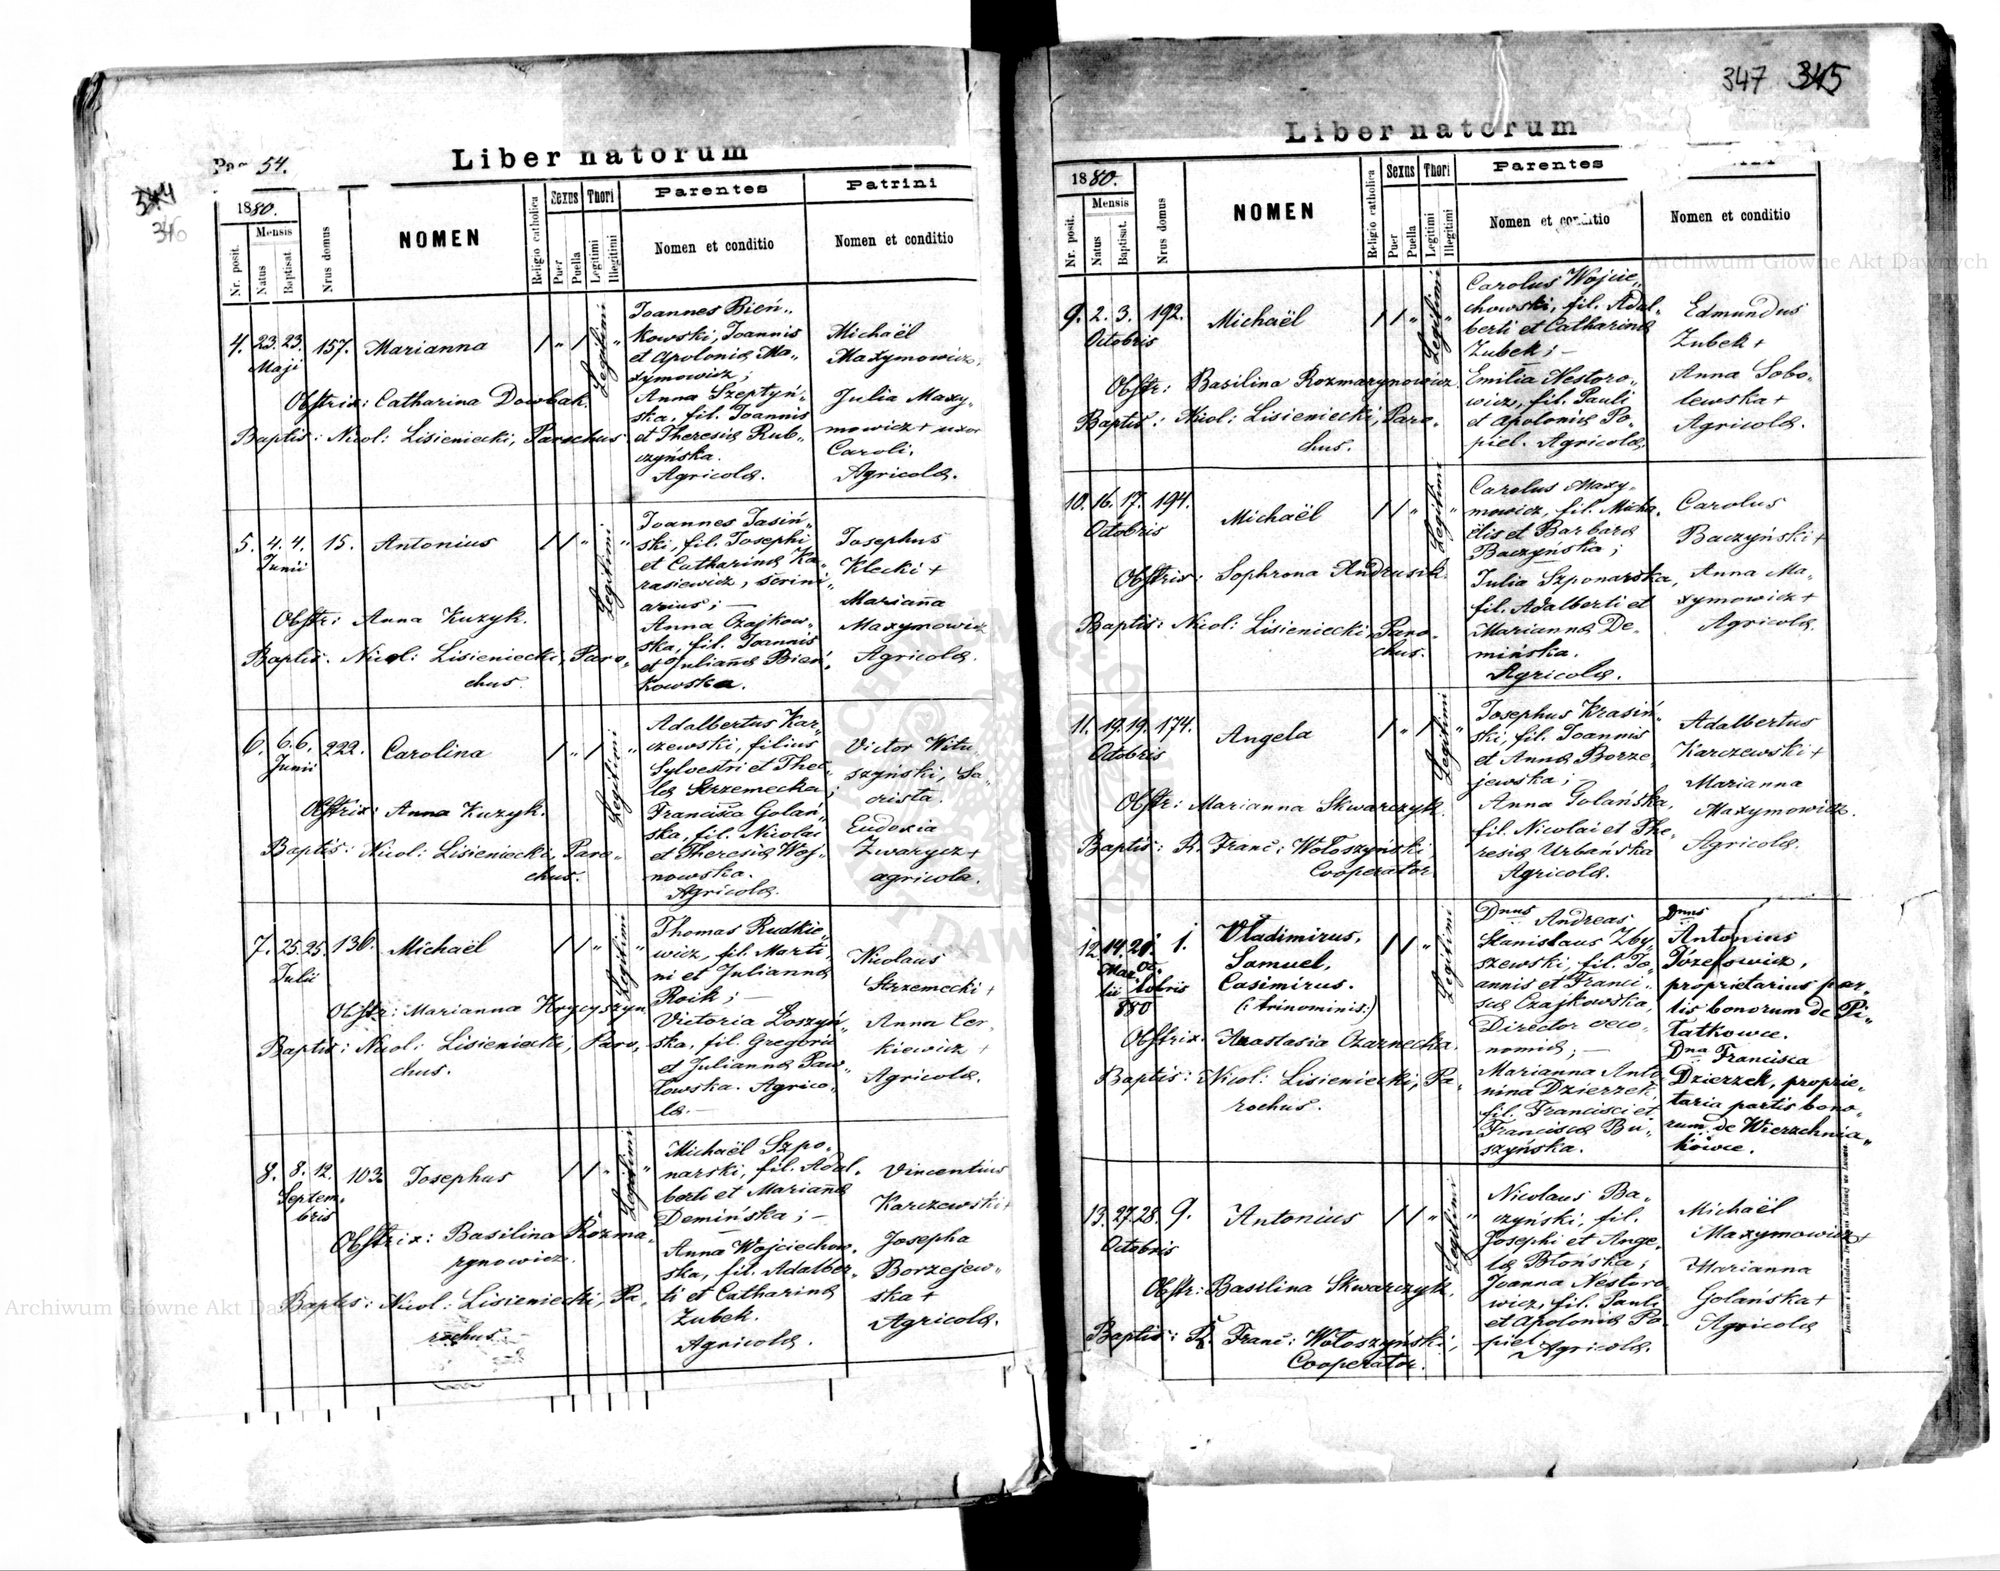 Pag 54.
Liber natorum
344
346
1880.
Nr. posit.
Mensis
Natus
Baptisat.
Nrus domus
NOMEN
Religio catholica
Sexus
Puer
Puella
Thori
Legitimi
Illegitimi
Parentes
Nomen et conditio
Patrini
Nomen et conditio
4. 23. 23. 157. Marianna / „ / Legitimi „
Maji
Obstrix: Catharina Dowbak.
Baptis: Nicol: Lisieniecki, Parochus
Joannes Bień„
kowski, Joannis
et Apolonia Ma„
xymowicz;
Anna Szeptyń„
ska, fil. Joannis
et Theresia Rub„
czyńska.
Agricola.
Michaël
Maxymowicz,
Julia Maxy„
mowicz + uxor
Caroli.
Agricola.
5. 4. 4. 15. Antonius / / „ Legitimi „
Junii
Obstr: Anna Kuzyk.
Baptis. Nicol: Lisieniecki, Paro„
chus.
Joannes Jasiń„
ski, fil. Josephi
et Catharina Ka„
rasiewicz, scrini„
arius; —
Anna Czajkow„
ska, fil. Joannis
et Julianna Bień„
kowska.
Josephus
Klecki +
Marianna
Maxymowicz
Agricola.
6. 6. 6. 222. Carolina / „ / Legitimi „
Junii
Obstrix: Anna Kuzyk.
Baptis: Nicol: Lisieniecki, Paro„
chus.
Adalbertus Kar„
czewski, filius
Sylvestri et Thec„
la Strzemecka;
Francisca Golań„
ska, fil. Nicolai
et Theresia Woj„
nowska.
Agricola.
Victor Witu
szyński, Sa„
crista.
Eudoxia
Zwarycz +
agricola.
7. 25. 25. 136. Michaël / / „ Legitimi „
Julii
Obstr: Marianna Hrycyszyn
Baptis: Nicol: Lisieniecki, Paro„
chus.
Thomas Rudkie„
wicz, fil. Marti„
ni et Julianna
Roik; —
Victoria Łoszyń„
ska, fil. Gregorii
et Julianna Paw„
łowska. Agrico„
la. —
Nicolaus
Strzemecki +
Anna Cer„
kiewicz +
Agricola.
8. 8. 12. 103. Josephus / / „ Legitimi „
Septem„
bris
Obstrix: Basilina Rozma„
rynowicz.
Baptis: Nicol: Lisieniecki, Pa„
rochus.
Michaël Szpo„
narski, fil. Adal„
berti et Marianna
Demińska; —
Anna Wojciechow„
ska, fil. Adalber„
ti et Catharina
Zubek.
Agricola.
Vincentius
Karczewski +
Josepha
Borzejew„
ska +
Agricola.
347 345
Liber natorum
1880.
Nr. posit.
Mensis
Natus
Baptisat.
Nrus domus
NOMEN
Religio catholica
Sexus
Puer
Puella
Thori
Legitimi
Illegitimi
Parentes
Nomen et conditio
Nomen et conditio
9. 2. 3. 192. Michaël / / „ Legitimi „
Octobris
Obstr: Basilina Rozmarynowicz
Baptis: Nicol: Lisieniecki, Paro„
chus.
Carolus Wojcie„
chowski, fil. Adal„
berti et Catharina
Zubek; —
Emilia Nestoro„
wicz, fil. Pauli
et Apolonia Po„
piel. Agricola.
Edmundus
Zubek +
Anna Sobo„
lewska +
Agricola.
10. 16. 17. 194. Michaël / / „ Legitimi „
Octobris
Obstrix: Sophrona Andrusik.
Baptis: Nicol: Lisieniecki, Paro„
chus.
Carolus Maxy„
mowicz, fil. Micha„
ëlis et Barbara
Baczyńska;
Julia Szponarska,
fil. Adalberti et
Marianna De„
mińska.
Agricola.
Carolus
Baczyński +
Anna Ma„
xymowicz +
Agricola.
11. 19. 19. 174. Angela / „ / Legitimi „
Octobris
Obstr: Marianna Skwarczyk.
Baptis: R. Franc: Wołoszyński,
Cooperator
Josephus Krasiń„
ski, fil. Joannis
et Anna Borze„
jewska;
Anna Golańska,
fil. Nicolai et The„
resia Urbańska
Agricola.
Adalbertus
Karczewski +
Marianna
Maxymowicz.
Agricola.
12. 14. 21. 1. Vladimirus, / / „ Legitimi
Mar„ Oc„
tii tobris
880
Samuel,
Casimirus.
(: trinominis :)
Obstrix. Anastasia Czarnecka.
Baptis: Nicol: Lisieniecki, Pa„
rochus.
Dnus Andreas
Stanislaus Zby„
szewski, fil. Jo„
annis et Franci„
sca Czajkowska,
Director oeco„
nomia; —
Marianna Anto
nina Dzierzek,
fil. Francisci et
Francisca Bu„
szyńska.
Dnus
Antonius
Józefowicz,
proprietarius par„
tis bonorum de Pi„
tatkowce.
Dna Francisca
Dzierzek, proprie„
taria partis bono„
rum de Wierzchnia„
kowce.
13. 27. 28. 9. Antonius / / „ Legitimi „
Octobris
Obstr: Basilina Skwarczyk.
Baptis: R. Franc: Wołoszyński,
Cooperator.
Nicolaus Ba„
czyński, fil.
Josephi et Ange„
la Błońska;
Joanna Nestoro„
wicz, fil. Pauli
et Apolonia Po„
piel.
Agricola.
Michaël
Maxymowicz +
Marianna
Golańska +
Agricola
Archiwum Główne Akt Dawnych
Archiwum Główne Akt Dawnych
ARCHIWUM GŁÓWNE AKT DAWNYCH